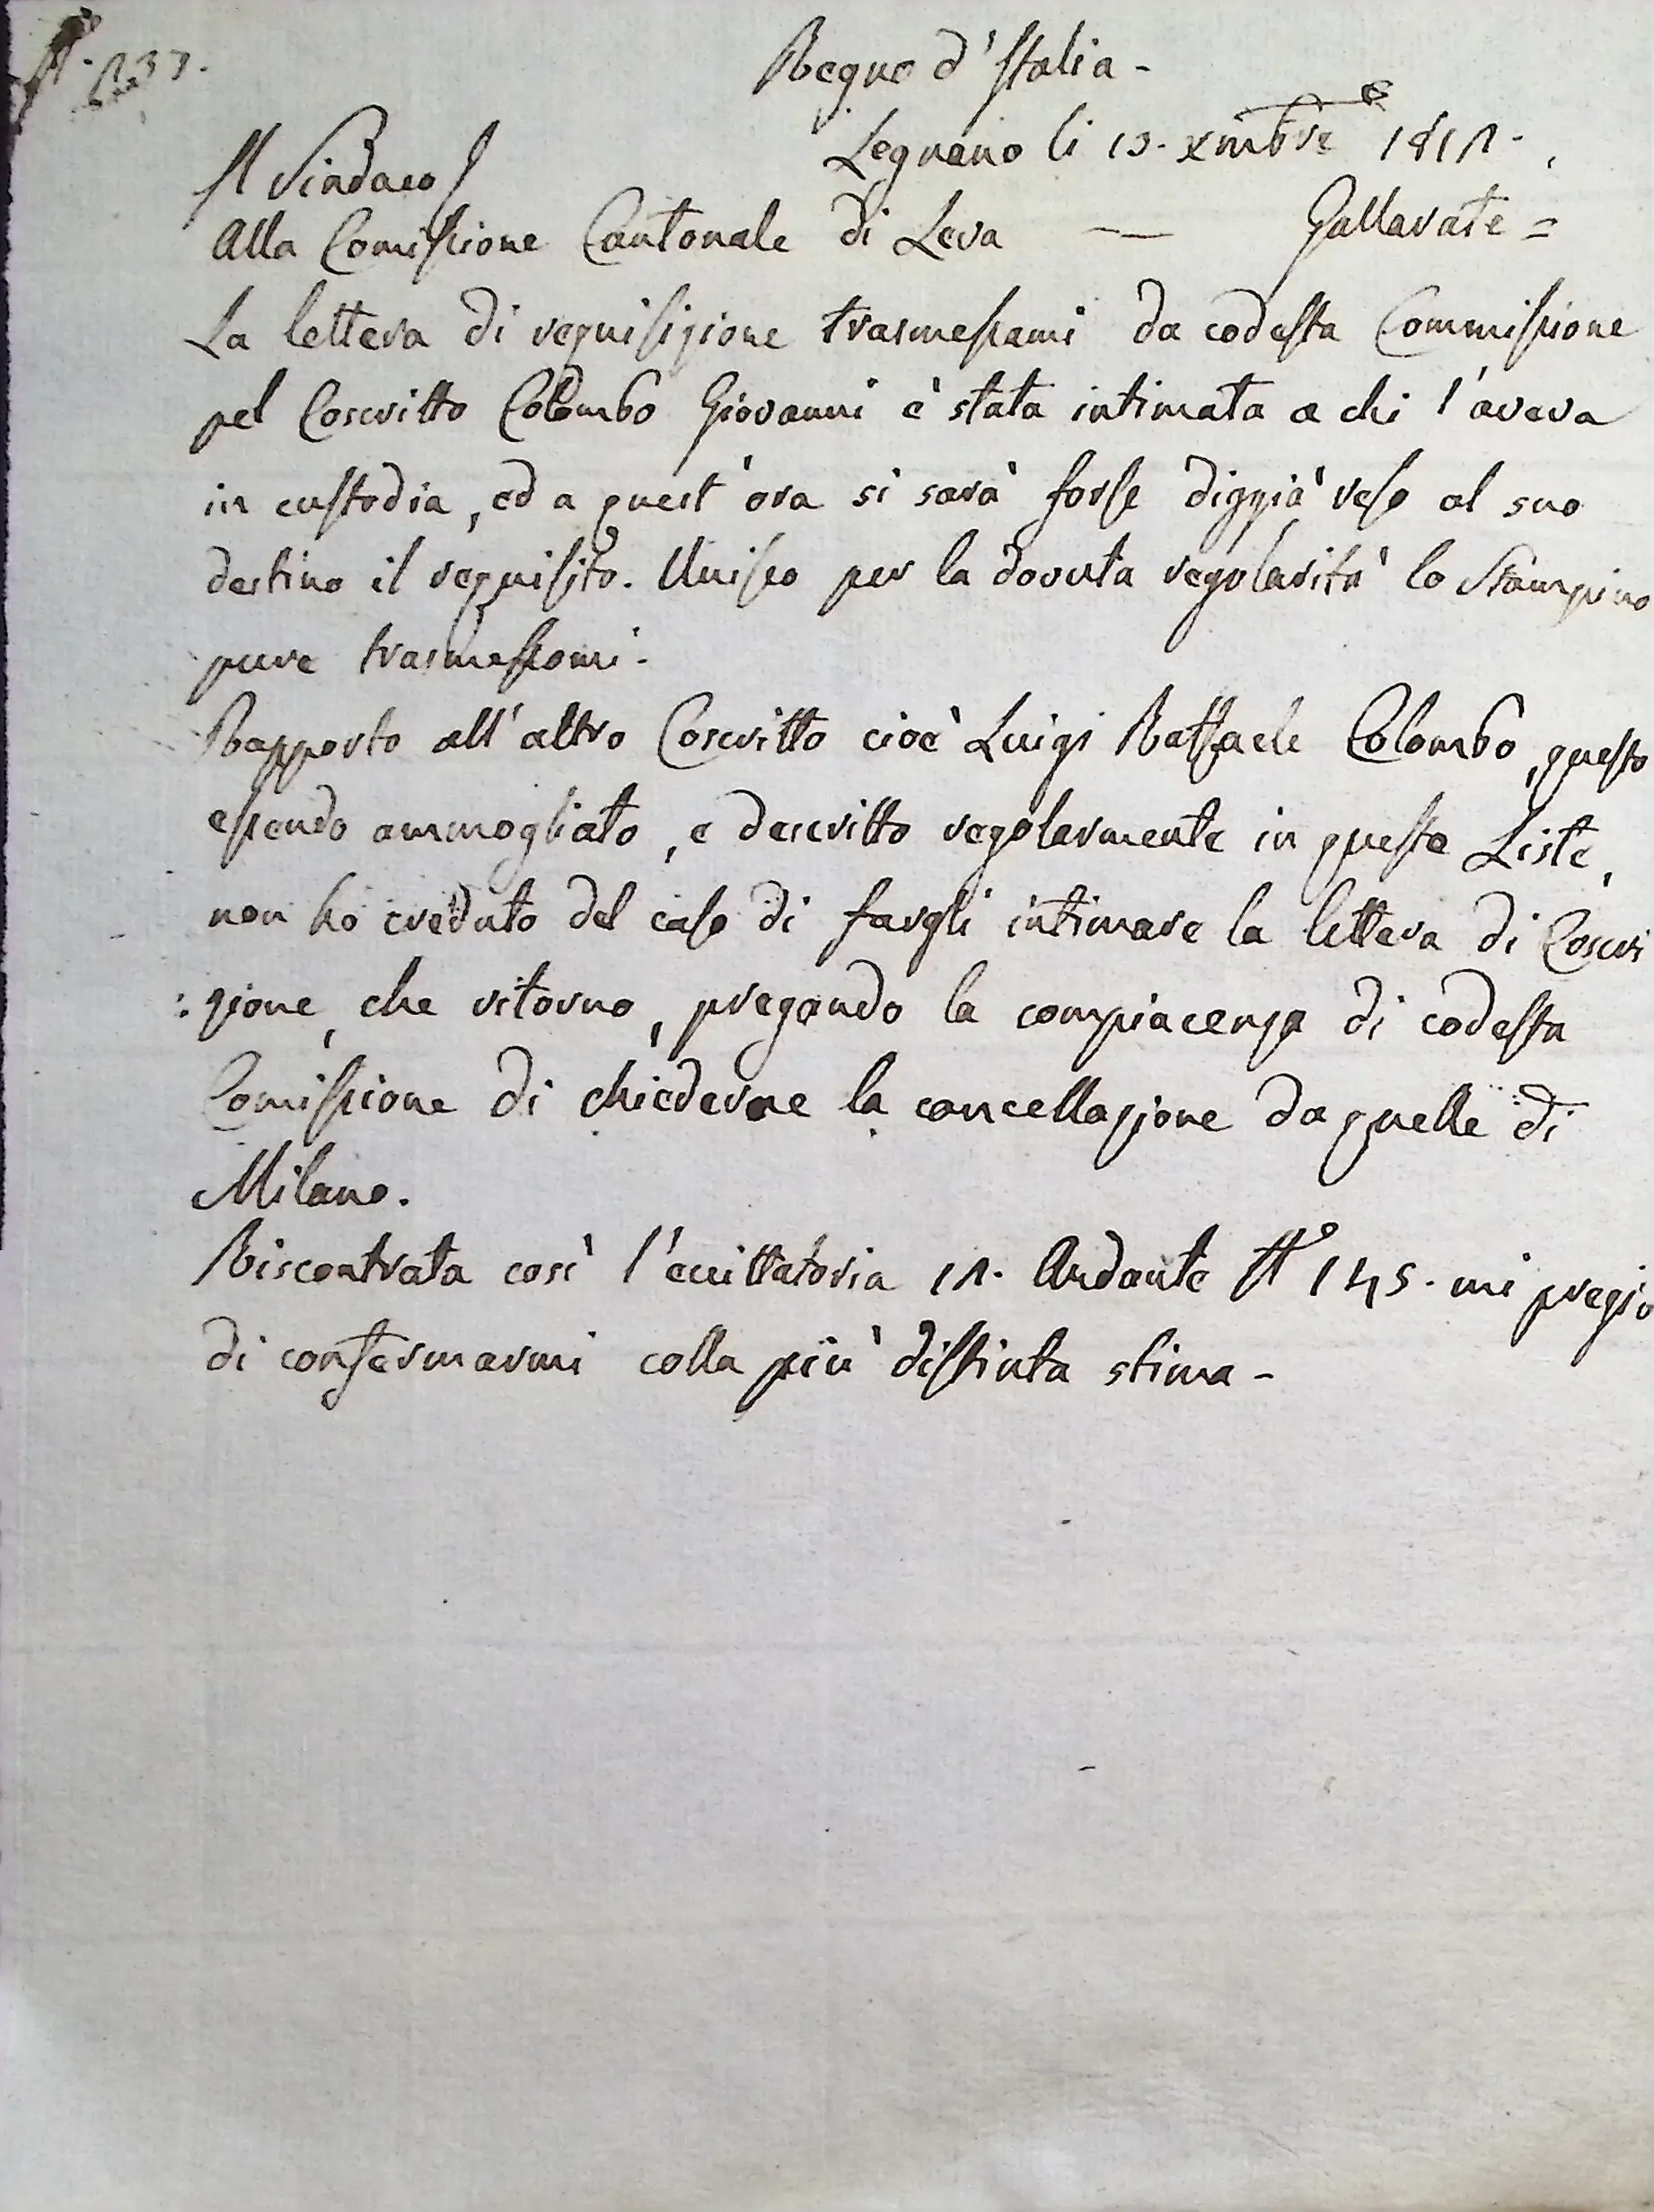 Regno d'Italia -
Legnano li 13. Xmbre 1811.
Il Sindaco
Alla Comissione Cantonale di Leva — Gallarate =
La lettera di requisizione trasmessami da codesta Commissione
pel Coscritto Colombo Giovanni è stata intimata a chi l'aveva
in custodia, ed a quest'ora si sarà forse diggià reso al suo
destino il requisito. Unisco per la dovuta regolarità lo Stampino
pure trasmessomi.
Rapporto all'altro Coscritto cioè Luigi Raffaele Colombo, questo
essendo ammogliato, e descritto regolarmente in queste Liste,
non ho creduto del caso di fargli intimare la lettera di Coscri
:zione, che ritorno, pregando la compiacenza di codesta
Comissione di chiederne la cancellazione da quelle di
Milano.
Riscontrata così l'eccittatoria 11. Andante N° 145. mi pregio
di confermarmi colla più distinta stima -